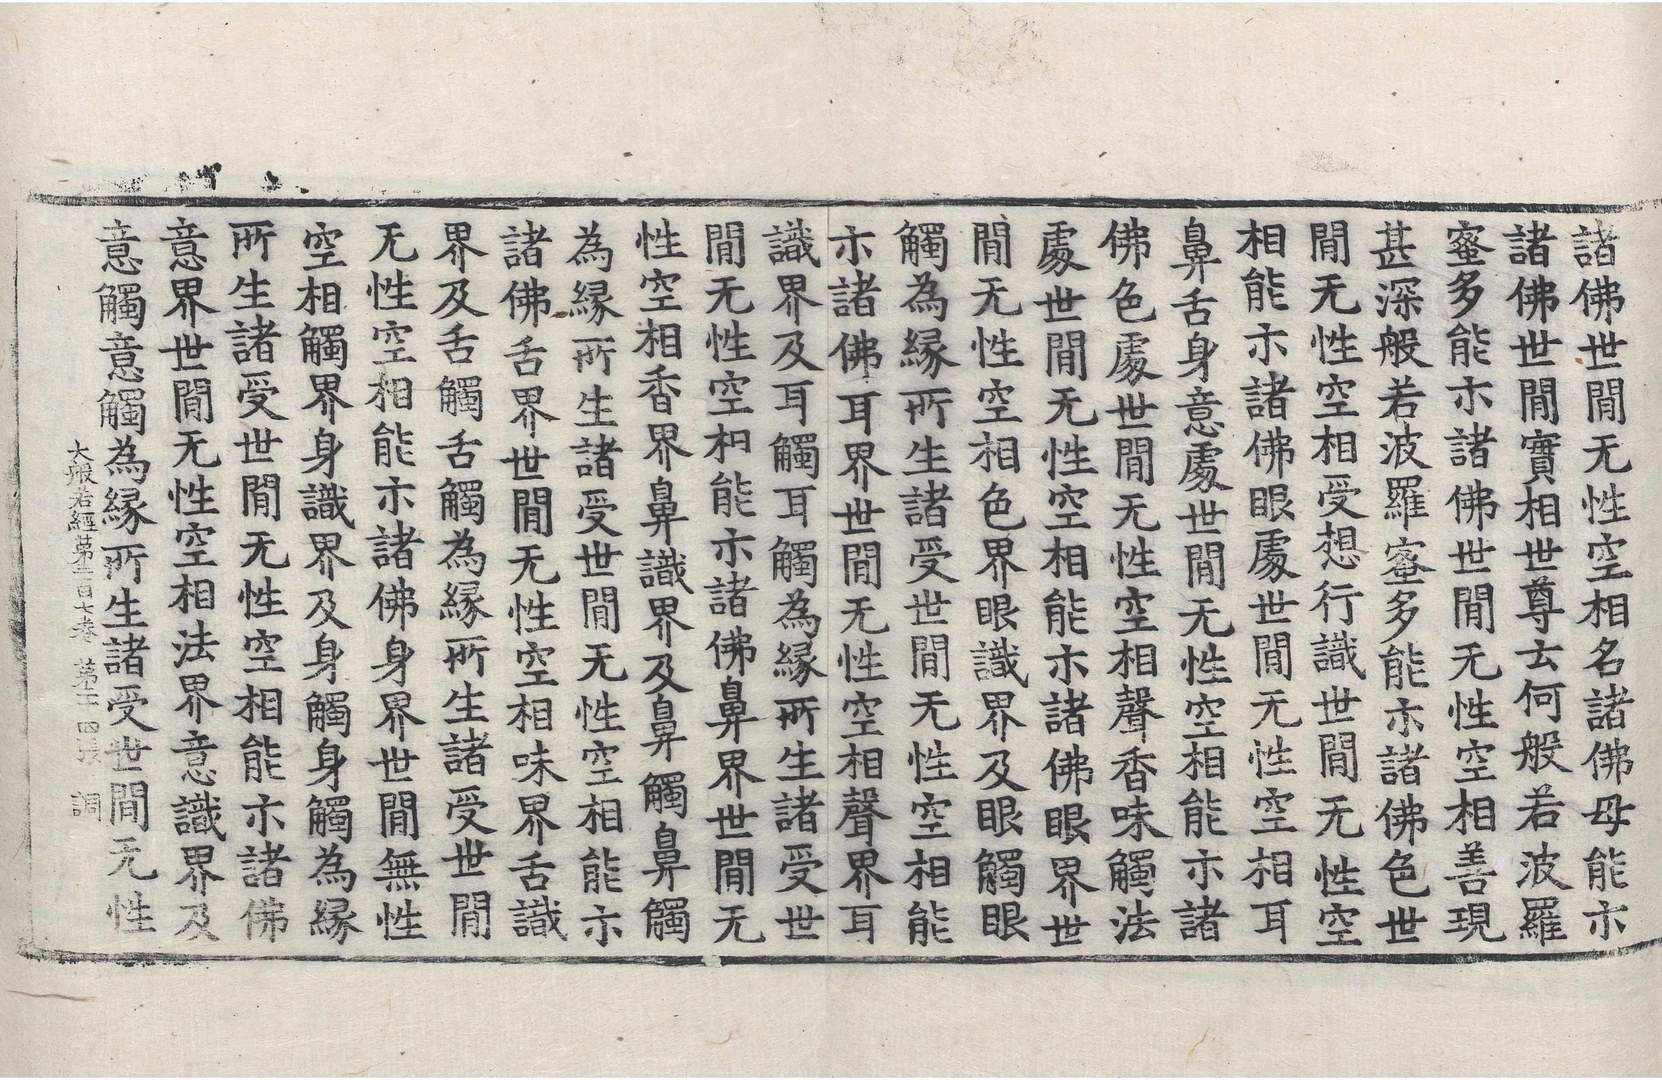 諸佛世閒无性空相名諸佛母能示
諸佛世閒實相世尊云何般若波羅
蜜多能示諸佛世閒无性空相善現
甚深般若波羅蜜多能示諸佛色世
閒无性空相受想行識世閒无性空
相能示諸佛眼處世閒无性空相耳
鼻舌身意處世閒无性空相能示諸
佛色處世閒无性空相聲香味觸法
處世閒无性空相能示諸佛眼界世
閒无性空相色界眼識界及眼觸眼
觸為緣所生諸受世閒无性空相能
示諸佛耳界世閒无性空相聲界耳
識界及耳觸耳觸為緣所生諸受世
閒无性空相能示諸佛鼻界世閒无
性空相香界鼻識界及鼻觸鼻觸
為緣所生諸受世閒无性空相能示
諸佛舌界世閒无性空相味界舌識
界及舌觸舌觸為緣所生諸受世閒
无性空相能示諸佛身界世閒無性
空相觸界身識界及身觸身觸為緣
所生諸受世閒无性空相能示諸佛
意界世閒无性空相法界意識界及
意觸意觸為緣所生諸受世閒无性
大般若經第三百七卷 第十四張 調